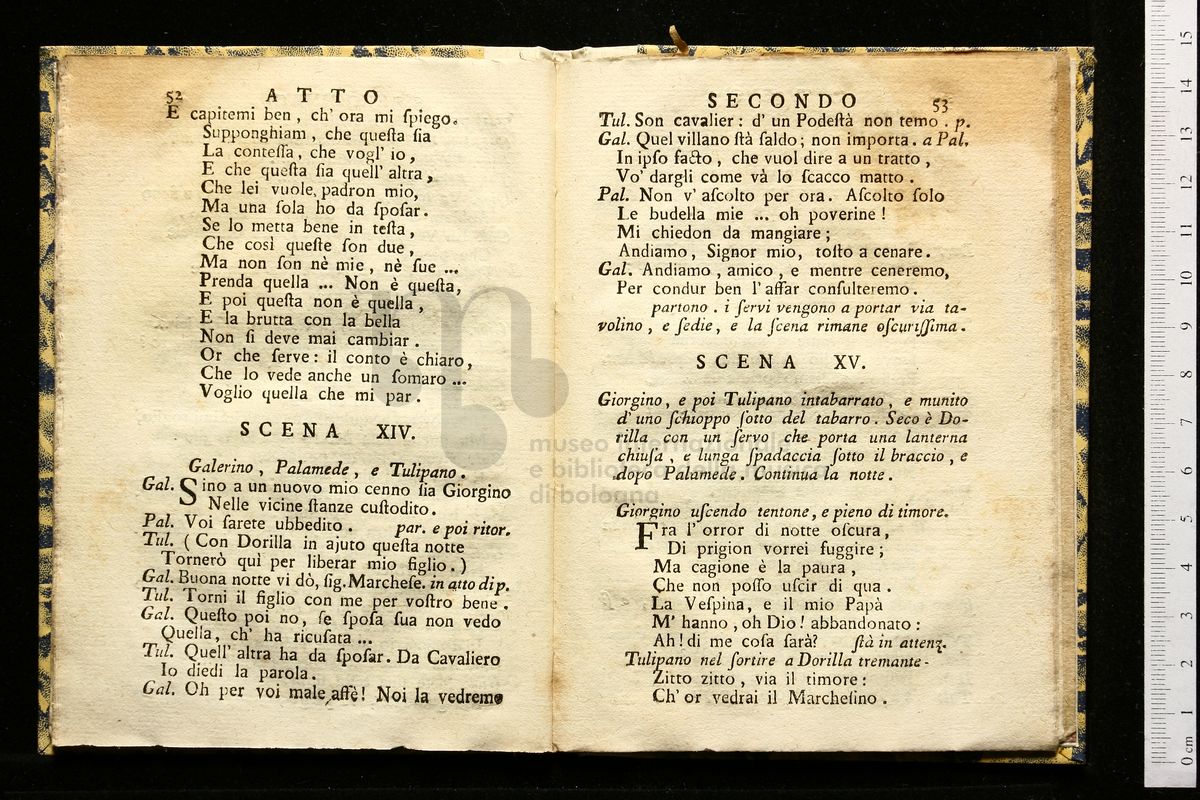 52 ATTO
E capitemi ben, ch' ora mi ſpiego.
Supponghiam, che queſta ſia
La conteſſa, che vogl' io,
E che queſta ſia quell' altra,
Che lei vuole, padron mio,
Ma una ſola ho da ſpoſar.
Se lo metta bene in teſta,
Che così queſte ſon due,
Ma non ſon nè mie, nè ſue ...
Prenda quella ... Non è queſta,
E poi queſta non è quella,
E la brutta con la bella
Non ſi deve mai cambiar.
Or che ſerve: il conto è chiaro,
Che lo vede anche un ſomaro ...
Voglio quella che mi par.
SCENA XIV.
Galerino, Palamede, e Tulipano.
Gal. Sino a un nuovo mio cenno ſia Giorgino
Nelle vicine ſtanze cuſtodito.
Pal. Voi ſarete ubbedito. par. e poi ritor.
Tul. (Con Dorilla in ajuto queſta notte
Tornerò quì per liberar mio figlio.)
Gal. Buona notte vi dò, ſig. Marcheſe. in atto di p.
Tul. Torni il figlio con me per voſtro bene.
Gal. Queſto poi no, ſe ſpoſa ſua non vedo
Quella, ch' ha ricuſata ...
Tul. Quell' altra ha da ſpoſar. Da Cavaliero
Io diedi la parola.
Gal. Oh per voi male, affè! Noi la vedremo
SECONDO 53
Tul. Son cavalier: d' un Podeſtà non temo. p.
Gal. Quel villano ſtà ſaldo; non importa. a Pal.
In ipſo facto, che vuol dire a un tratto,
Vo' dargli come và lo ſcacco matto.
Pal. Non v' aſcolto per ora. Aſcolto ſolo
Le budella mie ... oh poverine!
Mi chiedon da mangiare;
Andiamo, Signor mio, toſto a cenare.
Gal. Andiamo, amico, e mentre ceneremo,
Per condur ben l' affar conſulteremo.
partono. i ſervi vengono a portar via ta-
volino, e ſedie, e la ſcena rimane oſcuriſſima.
SCENA XV.
Giorgino, e poi Tulipano intabarrato, e munito
d' uno ſchioppo ſotto del tabarro. Seco è Do-
rilla con un ſervo che porta una lanterna
chiuſa, e lunga ſpadaccia ſotto il braccio, e
dopo Palamede. Continua la notte.
Giorgino uſcendo tentone, e pieno di timore.
Fra l' orror di notte oſcura,
Di prigion vorrei fuggire;
Ma cagione è la paura,
Che non poſſo uſcir di qua.
La Veſpina, e il mio Papà
M' hanno, oh Dio! abbandonato:
Ah! di me coſa ſarà? ſtà in attenz.
Tulipano nel ſortire a Dorilla tremante-
Zitto zitto, via il timore:
Ch' or vedrai il Marcheſino.
museo internazionale
e biblioteca della musica
di bologna
0 cm 1 2 3 4 5 6 7 8 9 10 11 12 13 14 15